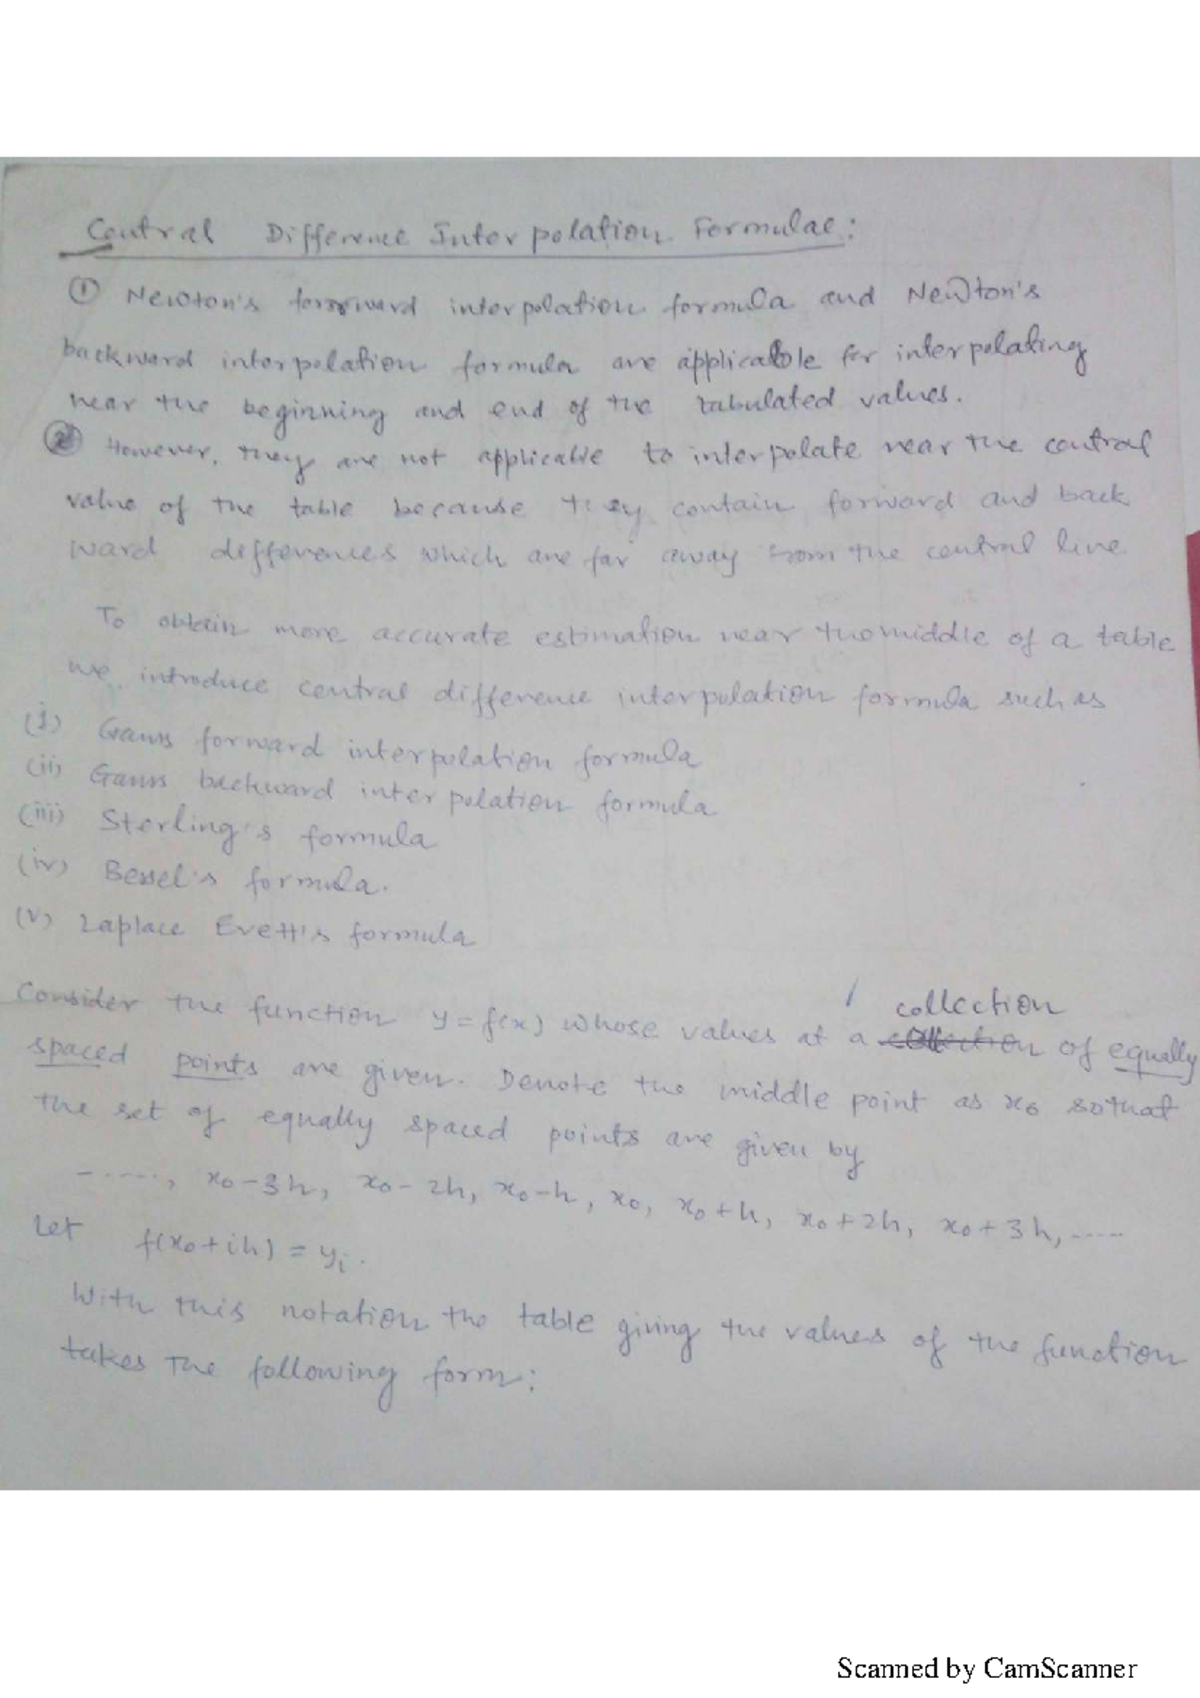 Central Difference Interpolation Formulae:
① Newton's forward interpolation formula and Newton's
backward interpolation formula are applicable for interpolating
near the beginning and end of the tabulated values.
② However, they are not applicable to interpolate near the central
value of the table because they contain forward and back
ward differences which are far away from the central line
To obtain more accurate estimation near the middle of a table
we introduce central difference interpolation formula such as
(i) Gauss forward interpolation formula
(ii) Gauss backward interpolation formula
(iii) Sterling's formula
(iv) Bessel's formula.
(v) Laplace Evett's formula
Consider the function y = f(x) whose values at a collection of equally
spaced points are given. Denote the middle point as x₀ so that
the set of equally spaced points are given by
......, x₀-3h, x₀-2h, x₀-h, x₀, x₀+h, x₀+2h, x₀+3h, .....
Let f(x₀+ih) = yᵢ.
With this notation the table giving the values of the function
takes the following form:
Scanned by CamScanner